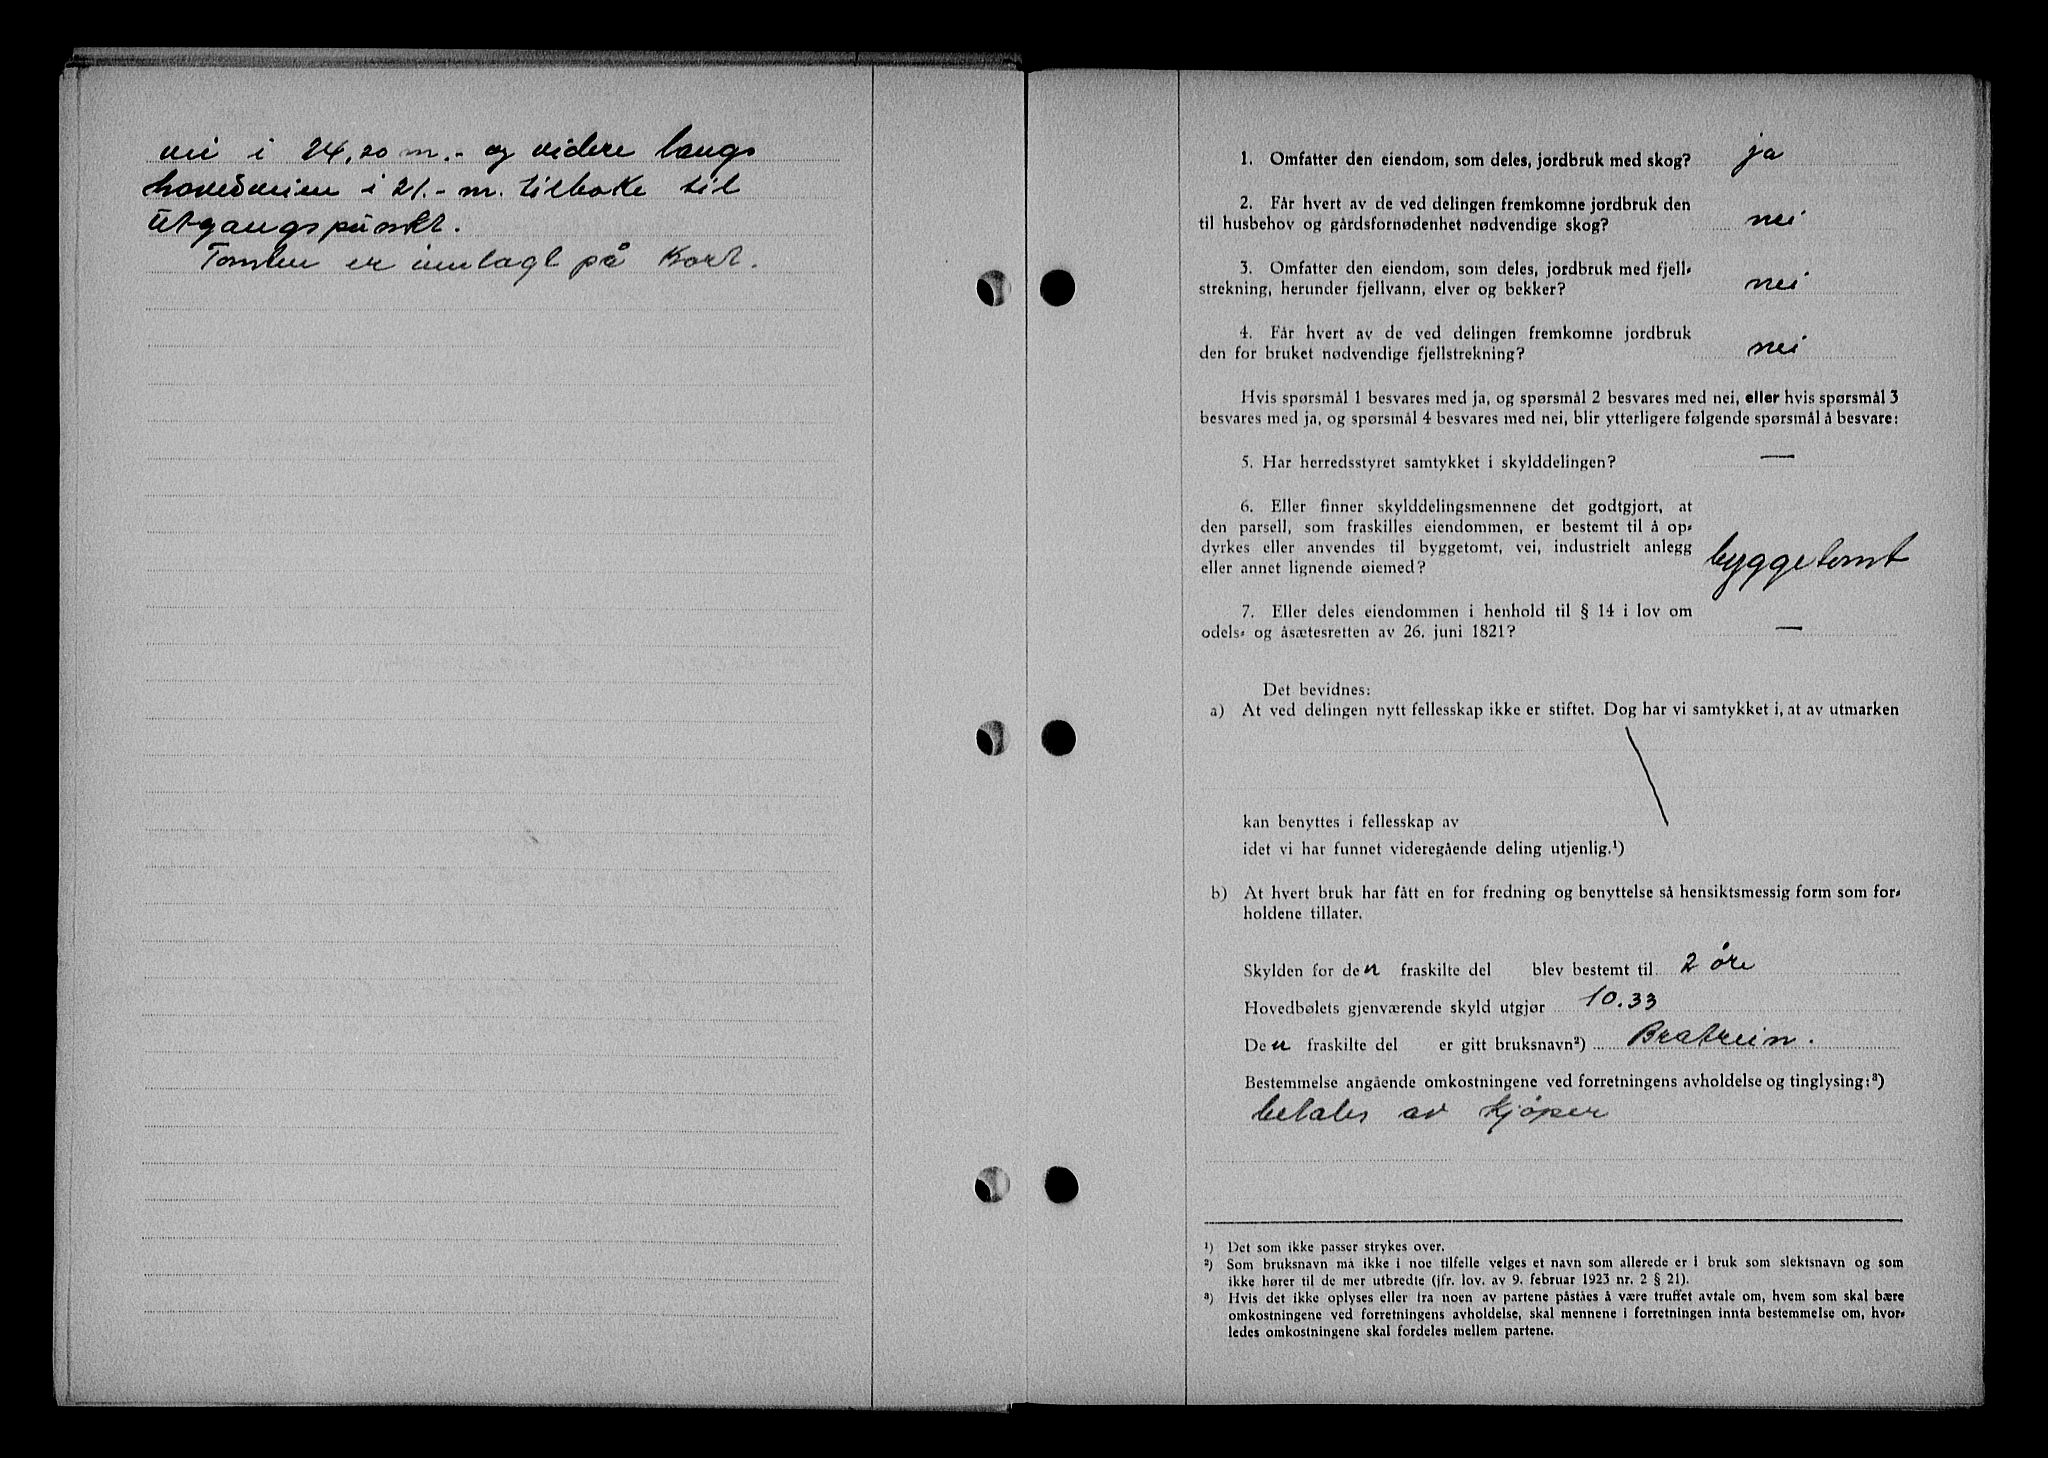 vei i 24,20 m.- og videre langs
hovedveien i 21.- m. tilbake til
Utgangspunkt.
Tomten er innlagt på Kart.
1. Omfatter den eiendom, som deles, jordbruk med skog? ja
2. Får hvert av de ved delingen fremkomne jordbruk den
til husbehov og gårdsfornødenhet nødvendige skog? nei
3. Omfatter den eiendom, som deles, jordbruk med fjell-
strekning, herunder fjellvann, elver og bekker? nei
4. Får hvert av de ved delingen fremkomne jordbruk
den for bruket nødvendige fjellstrekning? nei
Hvis spørsmål 1 besvares med ja, og spørsmål 2 besvares med nei, eller hvis spørsmål 3
besvares med ja, og spørsmål 4 besvares med nei, blir ytterligere følgende spørsmål å besvare:
5. Har herredsstyret samtykket i skylddelingen? —
6. Eller finner skylddelingsmennene det godtgjort, at
den parsell, som fraskilles eiendommen, er bestemt til å op-
dyrkes eller anvendes til byggetomt, vei, industrielt anlegg
eller annet lignende øiemed? byggetomt
7. Eller deles eiendommen i henhold til § 14 i lov om
odels- og åsætesretten av 26. juni 1821? —
Det bevidnes:
a) At ved delingen nytt fellesskap ikke er stiftet. Dog har vi samtykket i, at av utmarken
kan benyttes i fellesskap av
idet vi har funnet videregående deling utjenlig.¹)
b) At hvert bruk har fått en for fredning og benyttelse så hensiktsmessig form som for-
holdene tillater.
Skylden for den fraskilte del blev bestemt til 2 øre
Hovedbølets gjenværende skyld utgjør 10.33
Den fraskilte del er gitt bruksnavn²) Bratrein.
Bestemmelse angående omkostningene ved forretningens avholdelse og tinglysing:³)
betales av kjøper
¹) Det som ikke passer strykes over.
²) Som bruksnavn må ikke i noe tilfelle velges et navn som allerede er i bruk som slektsnavn og som
ikke hører til de mer utbredte (jfr. lov. av 9. februar 1923 nr. 2 § 21).
³) Hvis det ikke oplyses eller fra noen av partene påståes å være truffet avtale om, hvem som skal bære
omkostningene ved forretningens avholdelse, skal mennene i forretningen innta bestemmelse om, hvor-
ledes omkostningene skal fordeles mellem partene.